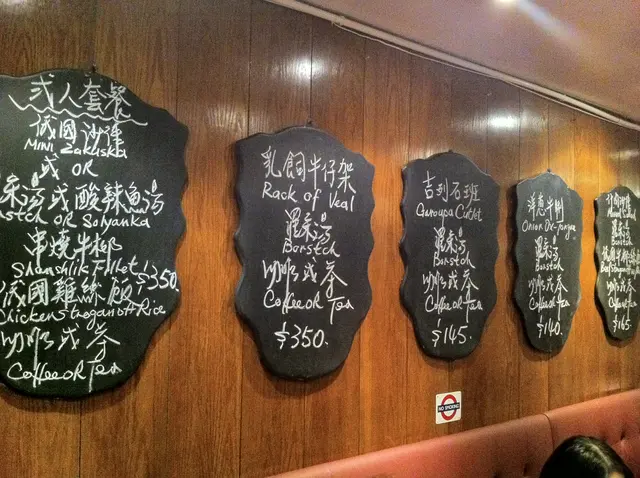 弍人套餐
俄國沙律
Mini Zakuska
或 OR
羅宋湯或酸辣魚湯
Borstch OR Solyanka
串燒牛柳
Shashlik Fillet
$350.
俄國雞絲飯
Chicken Stroganoff Rice
咖啡或茶
Coffee OR Tea
乳飼牛仔架
Rack of Veal
羅宋湯
Borstch
咖啡或茶
Coffee OR Tea
$350.
吉列石班
Garoupa Cutlet
羅宋湯
Borstch
咖啡或茶
Coffee OR Tea
$145.
洋葱牛脷
Onion Ox-Tongue
羅宋湯
Borstch
咖啡或茶
Coffee OR Tea
$140.
羅宋湯
Borstch
咖啡或茶
Coffee OR Tea
$165
NO SMOKING